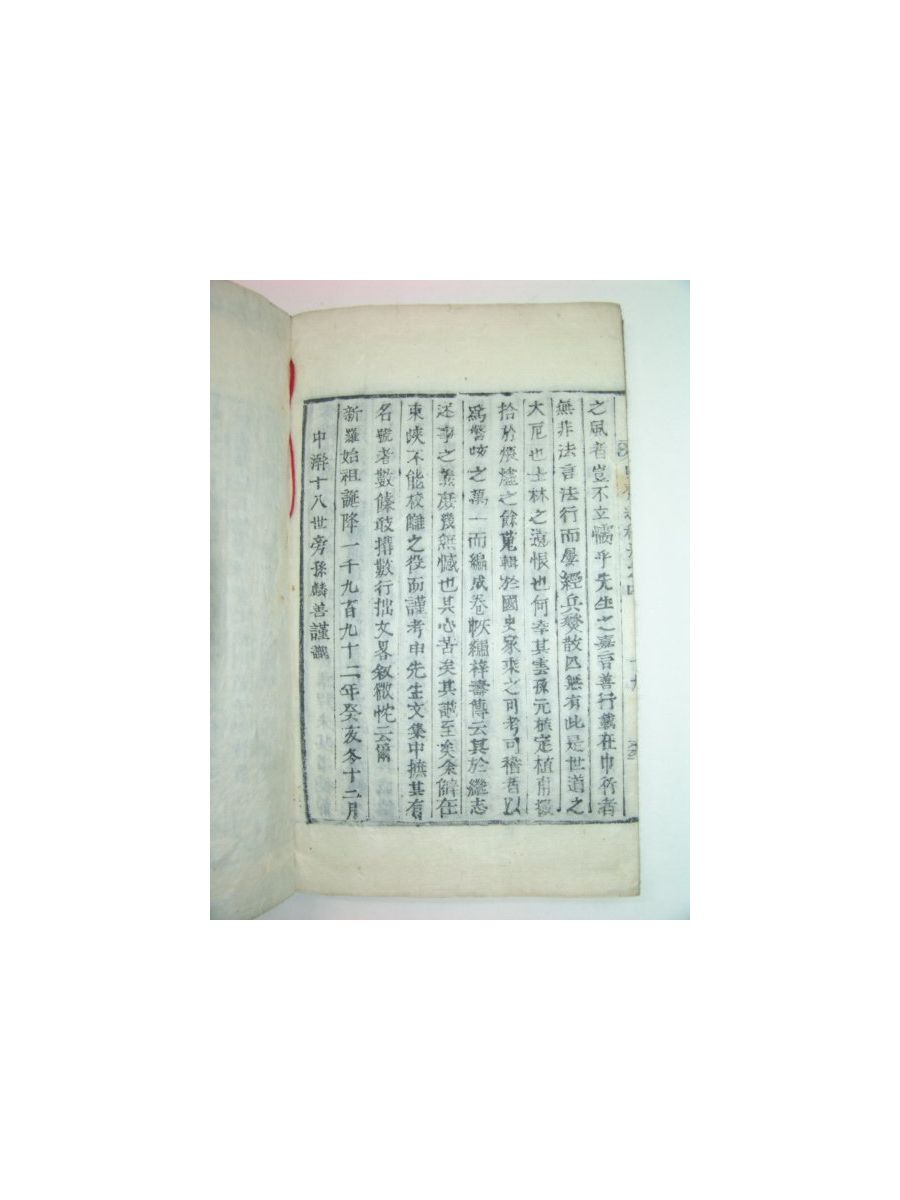 之風者豈不立懦乎先生之嘉言善行載在巾衍者
無非法言法行而屢經兵燹散亡無有此是世道之
大厄也士林之遺恨也何幸其雲孫元植定植甫掇
拾於煨燼之餘蒐輯於國史家乘之可考可稽者以
爲警咳之萬一而編成卷帙繡梓壽傳云其於繼志
述事之義庶幾無憾也其心苦矣其誠至矣余僻在
東峽不能校讎之役而謹考申先生文集中摭其有
名號者數條敢搆數行拙文畧叙微忱云爾
新羅始祖誕降一千九百九十二年癸亥冬十二月
中澣十八世旁孫麟善謹識